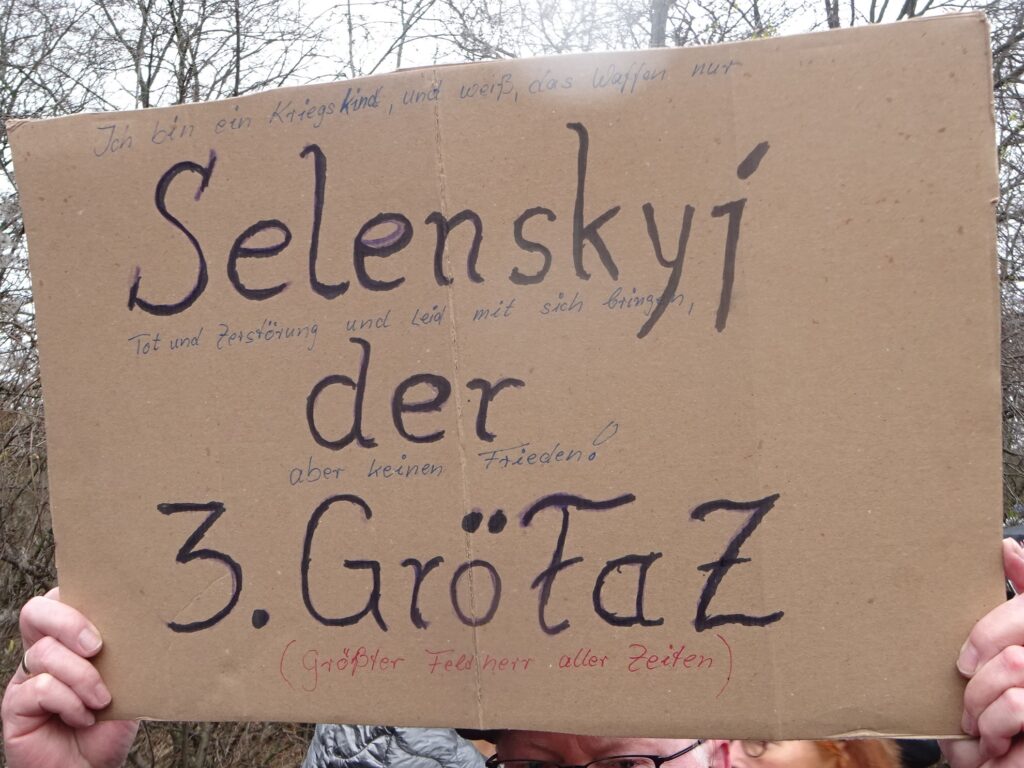 Ich bin ein Kriegskind, und weiß, das Waffen nur
Selenskyj
Tot und Zerstörung und Leid mit sich bringen,
der
aber keinen Frieden!
3. GröFaZ
(Größter Feldherr aller Zeiten)